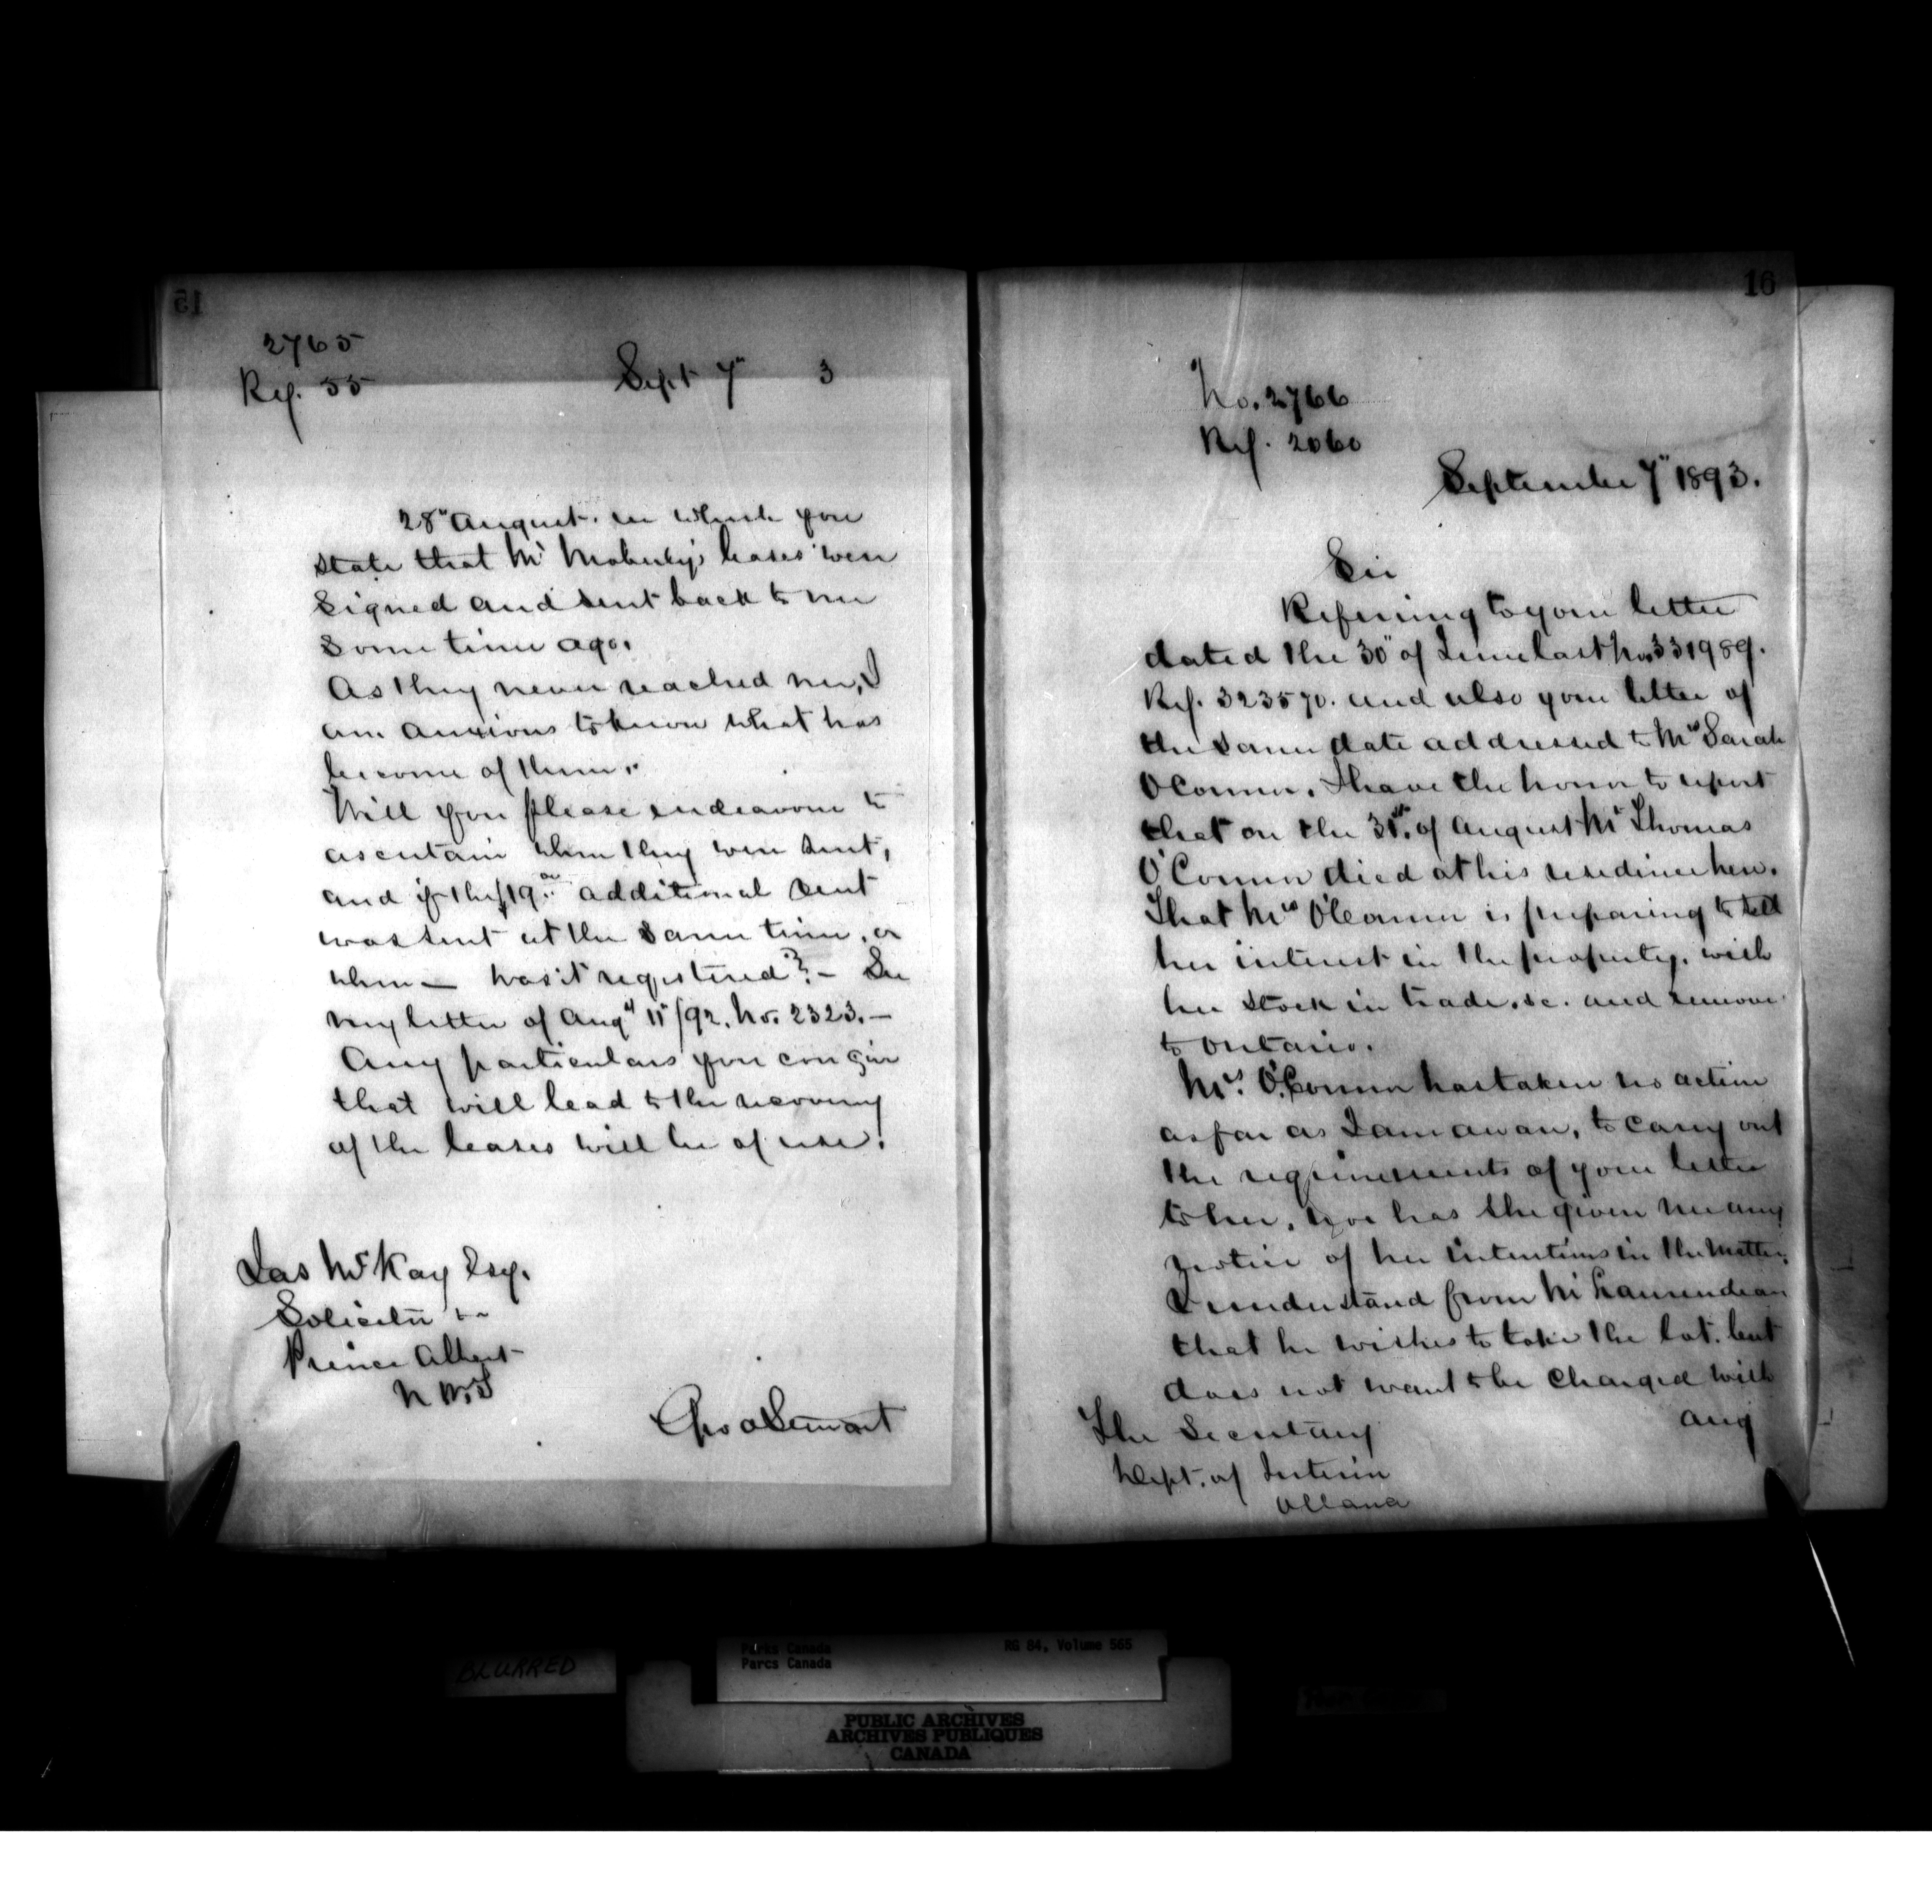 15
2765
Ref. 55
Sept 7" 3
28" August. in which you
state that Mr Moberly's leases were
signed and sent back to me
some time ago.
As they never reached me, I
am anxious to know what has
become of them.
Will you please endeavour to
ascertain when they were sent,
and if the $19.00 additional rent
was sent at the same time, or
when — was it registered? — See
my letter of Augt 11/92. No. 2323. —
Any particulars you can give
that will lead to the recovery
of the leases will be of use.
Jas McKay Esq.
Solicitor
Prince Albert
N.W.T
Geo A Stewart
16
No. 2766
Ref. 2060
September 7" 1893.
Sir
Referring to your letter
dated the 30" of June last No. 331989.
Ref. 323570. and also your letter of
the same date addressed to Mrs Sarah
O'Connor. I have the honor to report
that on the 31st. of August Mr Thomas
O'Connor died at his residence here.
That Mrs O'Connor is preparing to sell
her interest in the property. with
her stock in trade. &c. and remove
to Ontario.
Mrs. O'Connor has taken no action
as far as I am aware, to carry out
the requirements of your letter
to her, nor has she given me any
notice of her intentions in the matter.
I understand from Mr Laurendeau
that he wishes to take the lot. but
does not want to be charged with
any
The Secretary
Dept. of Interior
Ottawa
BLURRED
Parks Canada
Parcs Canada
RG 84, Volume 565
PUBLIC ARCHIVES
ARCHIVES PUBLIQUES
CANADA